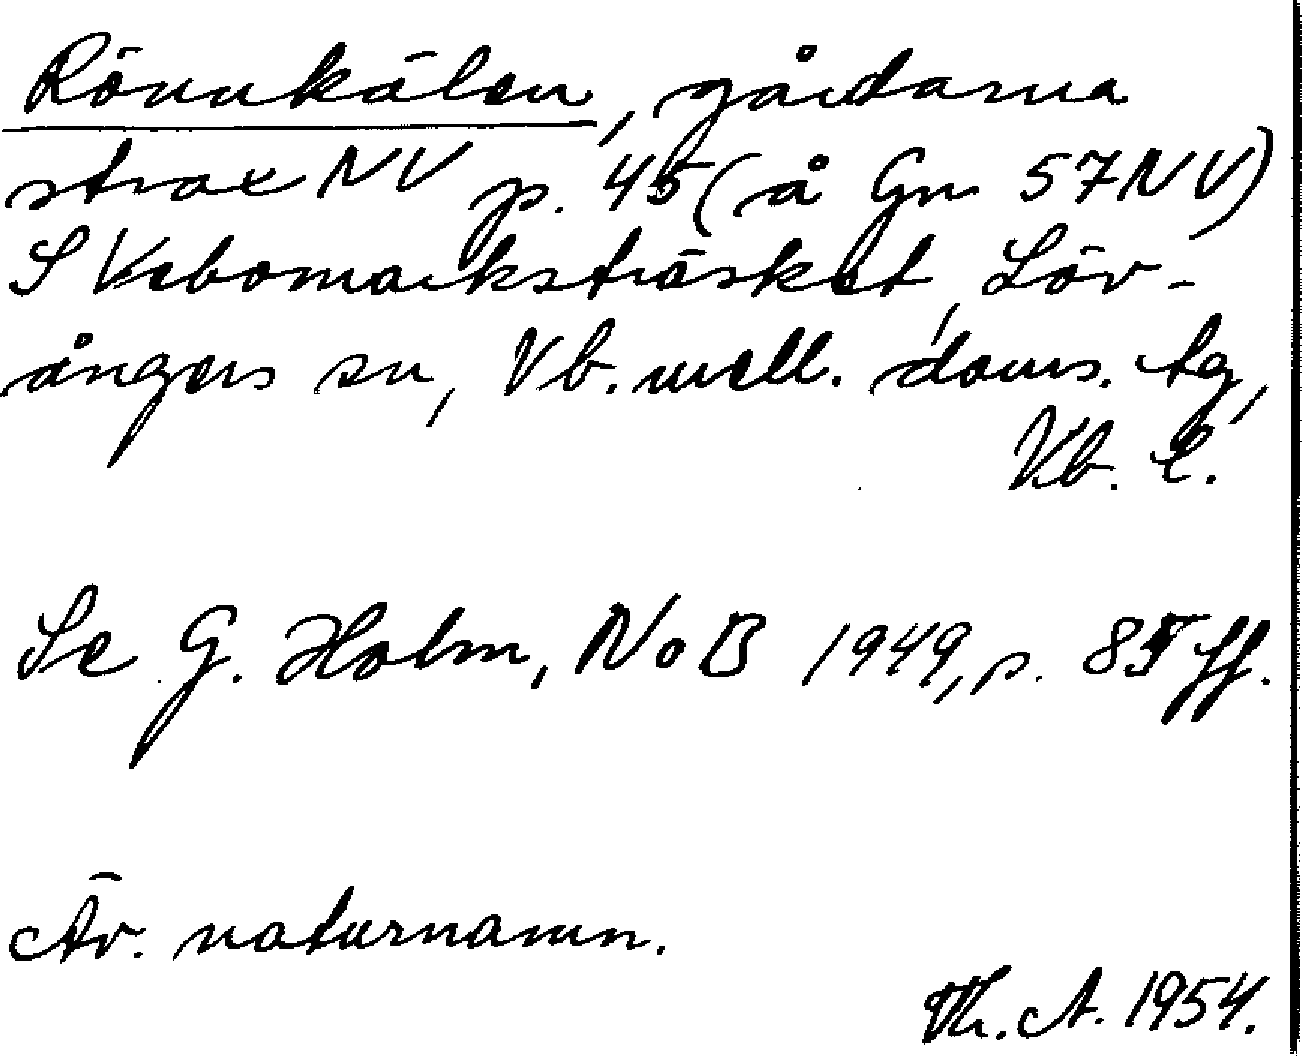 Rönnkälen, gårdarna
strax NV p. 45 (å Gn 57NV)
S Vebomarksträsket, Löv-
ångers sn, Vb. mell. doms. tg,
Vb. l.
Se G. Holm, NoB 1949, s. 85 ff.
Äv. naturnamn.
Th. A. 1954.